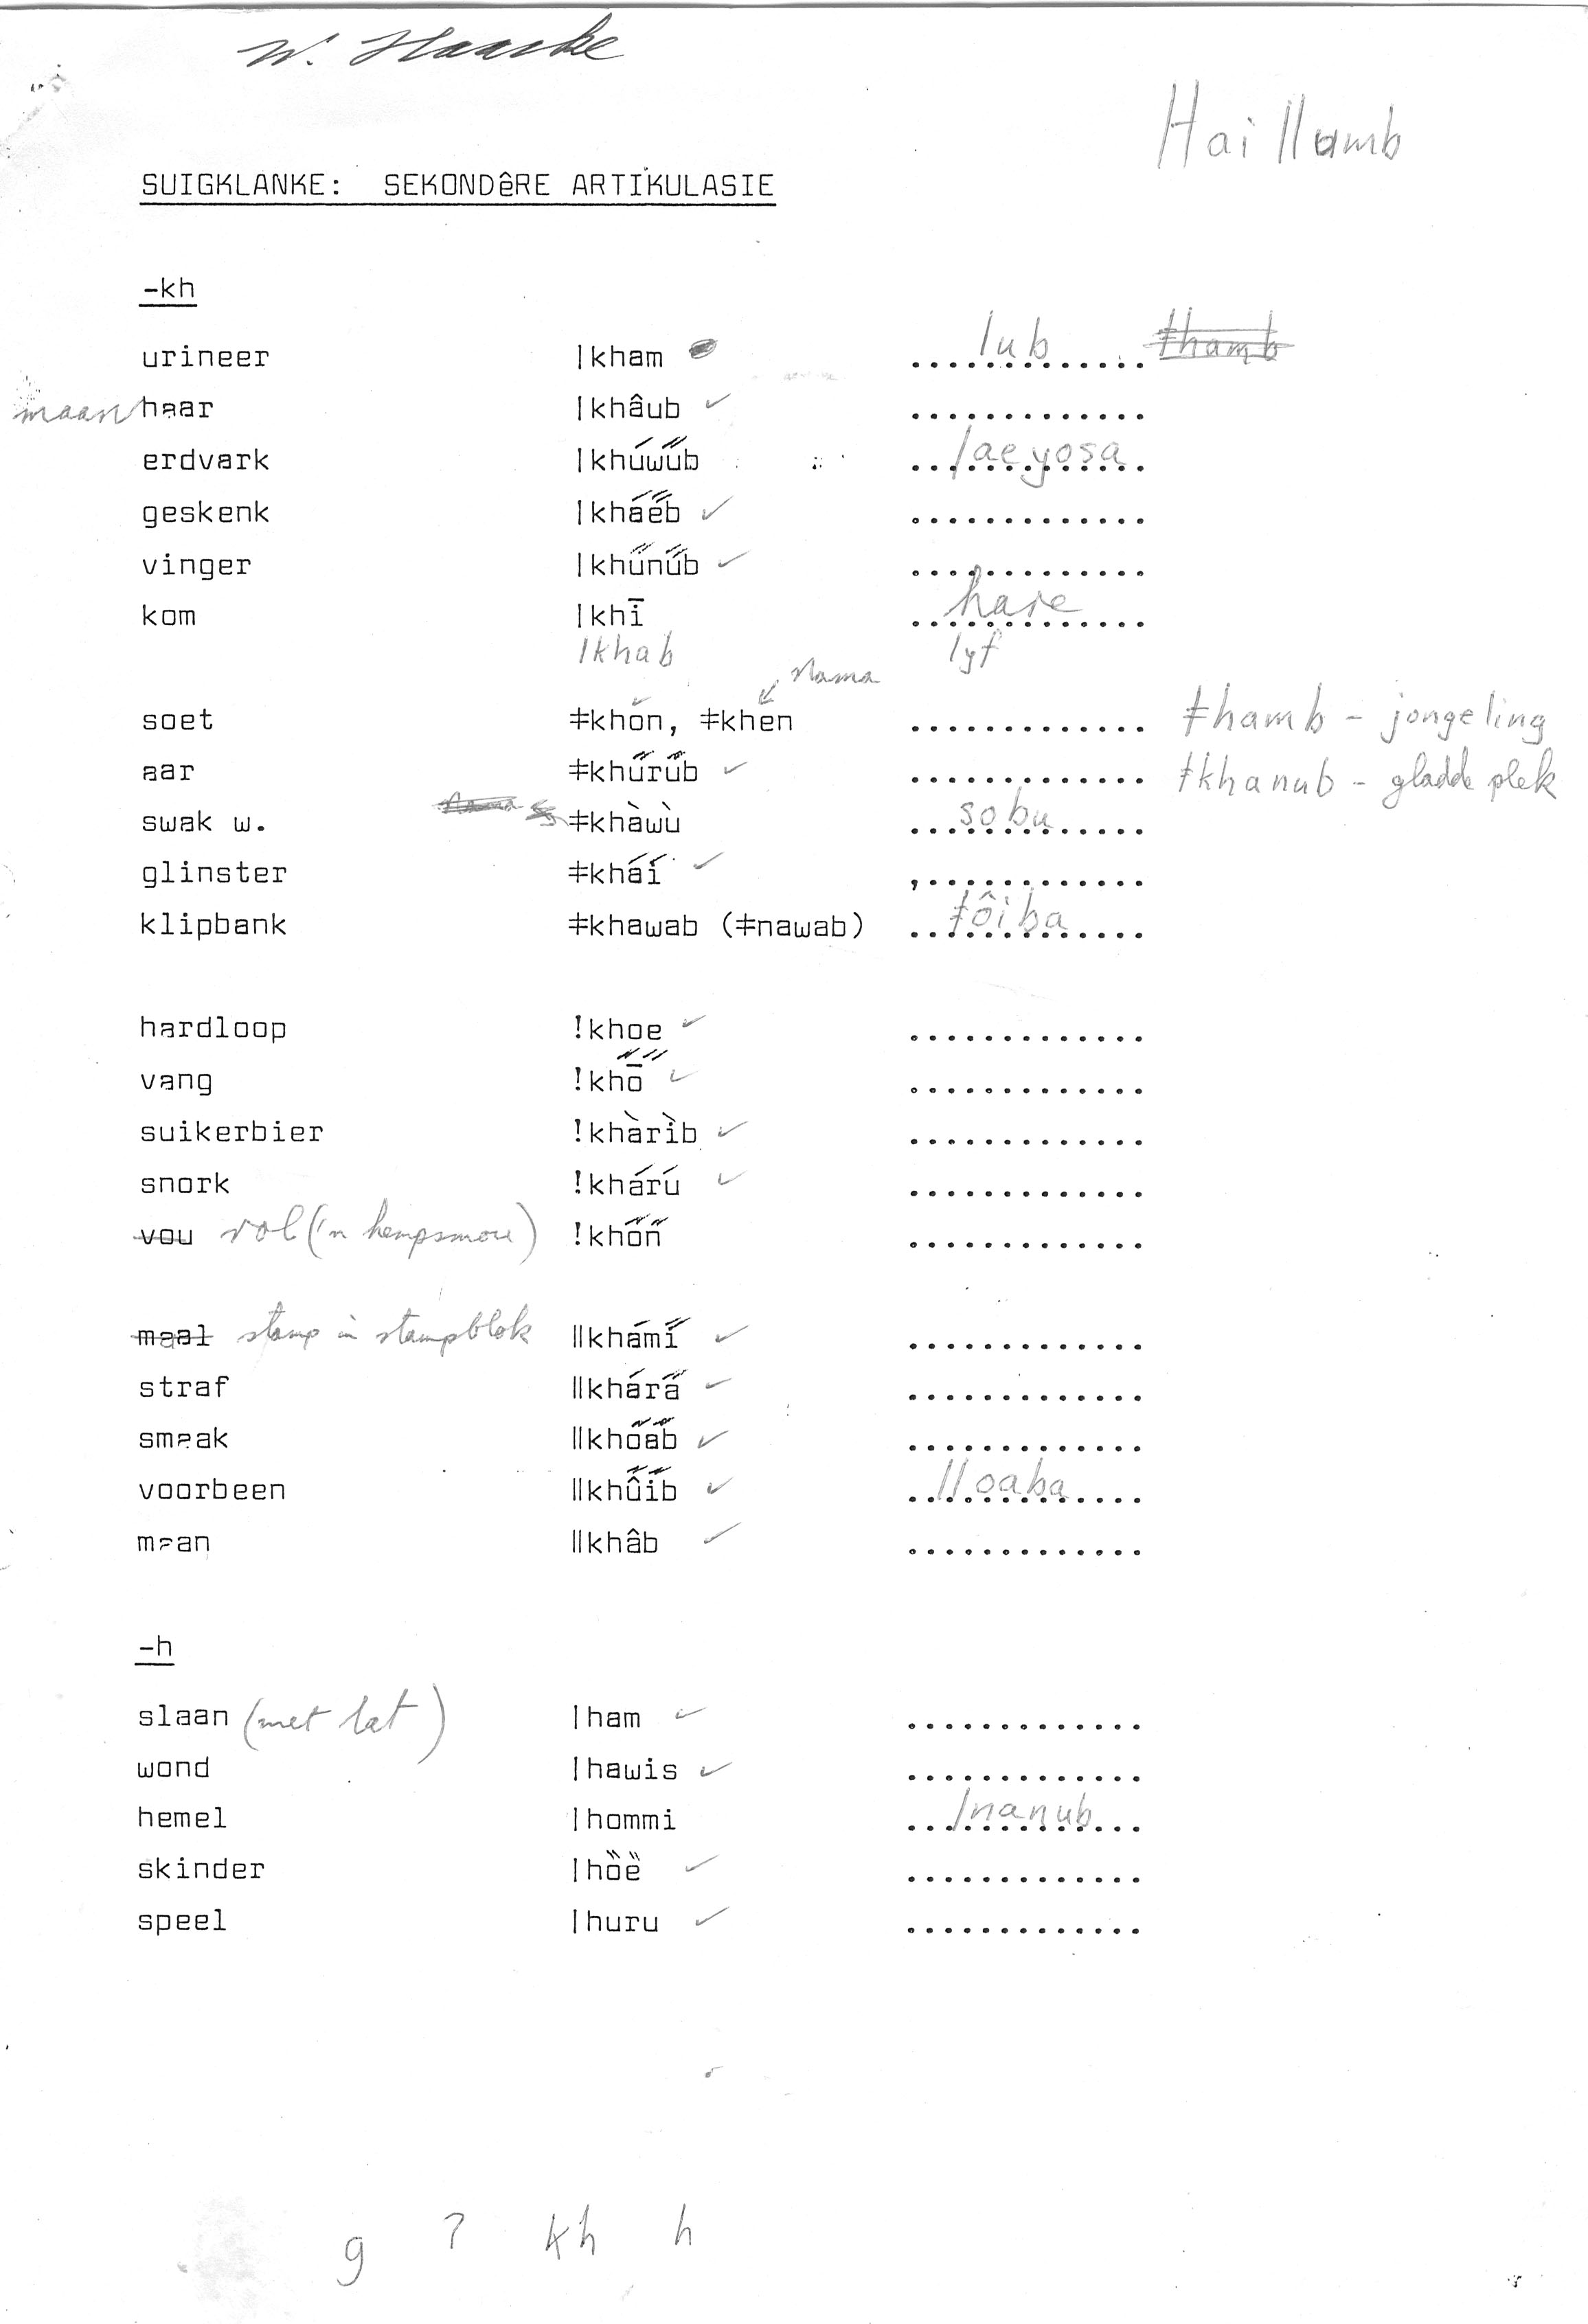 W. Haacke
Hai ǁumb
SUIGKLANKE: SEKONDêRE ARTIKULASIE
-kh
urineer ǀkham ............. ǀub ǂhamb
maan haar ǀkhâub ✓ .............
erdvark ǀkhúwű̋b ............. ǀaeyosa
geskenk ǀkháe̋b ✓ .............
vinger ǀkhűnűb ✓ .............
kom ǀkhī ............. hare
ǀkhab lyf
Nama
soet ǂkhón, ǂkhen ............. ǂhamb - jongeling
aar ǂkhűrűb ✓ ............. ǂkhanub - gladde plek
swak w. Nama ǂkhàwù ............. sobu
glinster ǂkháí ✓ .............
klipbank ǂkhawab (ǂnawab) ............. ǂôiba
hardloop !khoe ✓ .............
vang !khō̋ ✓ .............
suikerbier !khàrìb ✓ .............
snork !khárú ✓ .............
vou rol ('n hempsmou) !khőn̋ .............
maal stamp in stampblok ǁkhámi̋ ✓ .............
straf ǁkhára̋ ✓ .............
smaak ǁkhőa̋b ✓ .............
voorbeen ǁkhű̂i̋b ✓ ............. ǁoaba
maan ǁkhâb ✓ .............
-h
slaan (met lat) ǀham ✓ .............
wond ǀhawis ✓ .............
hemel ǀhommi ............. ǀnanub
skinder ǀhȍȅ ✓ .............
speel ǀhuru ✓ .............
g ? kh h